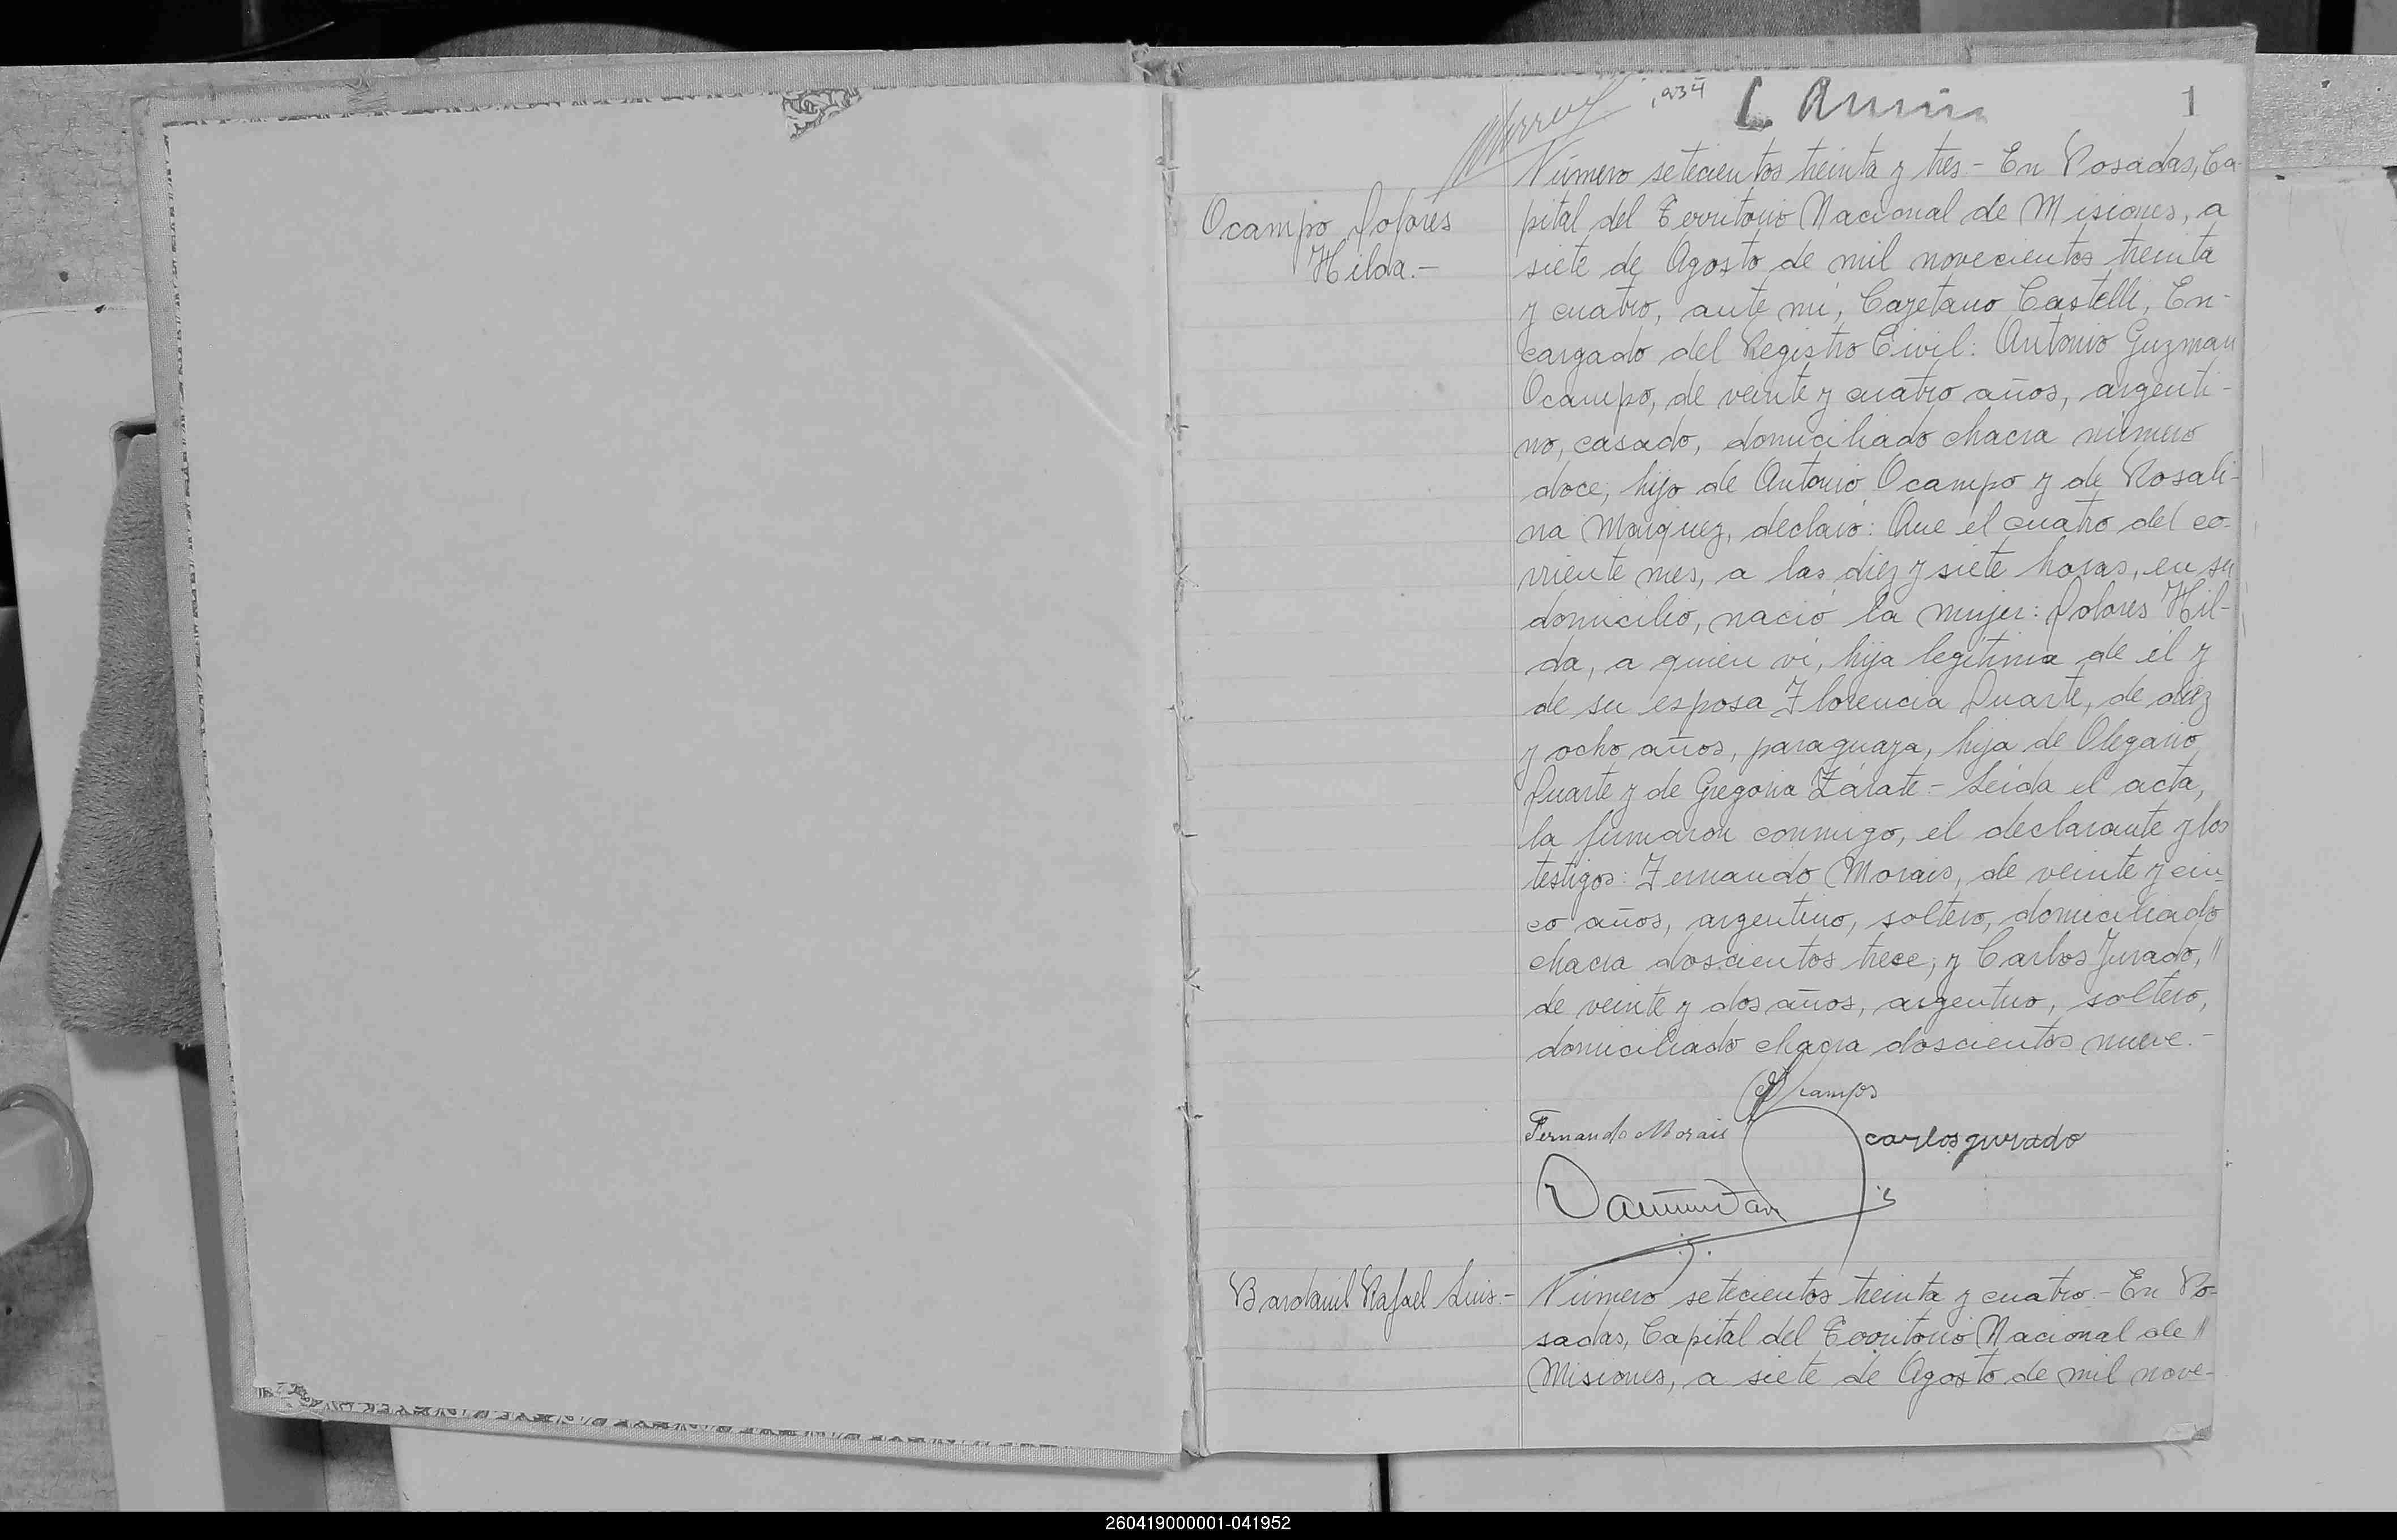 1934
1
Ocampo Dolores
Hilda.-
Número setecientos treinta y tres - En Posadas, Ca-
pital del Territorio Nacional de Misiones, a
siete de Agosto de mil novecientos treinta
y cuatro, ante mí, Cayetano Castelli, En-
cargado del Registro Civil: Antonio Guzman
Ocampo, de veinte y cuatro años, argenti-
no, casado, domiciliado chacra número
doce, hijo de Antonio Ocampo y de Rosali-
na Marquez, declaró: Que el cuatro del co-
rriente mes, a las diez y siete horas, en su
domicilio, nació la mujer: Dolores Hil-
da, a quien ví, hija legítima de él y
de su esposa Florencia Duarte, de diez
y ocho años, paraguaya, hija de Olegario
Duarte y de Gregoria Zárate - Leída el acta,
la firmaron conmigo, el declarante y los
testigos: Fernando Morais, de veinte y cin-
co años, argentino, soltero, domiciliado
chacra doscientos trece, y Carlos Jurado, "
de veinte y dos años, argentino, soltero,
domiciliado chacra doscientos nueve.-
Ocampos
Fernando Morais carlos jurado
Bardanil Rafael Luis.-
Número setecientos treinta y cuatro.- En Po-
sadas, Capital del Territorio Nacional de "
Misiones, a siete de Agosto de mil nove-
260419000001-041952